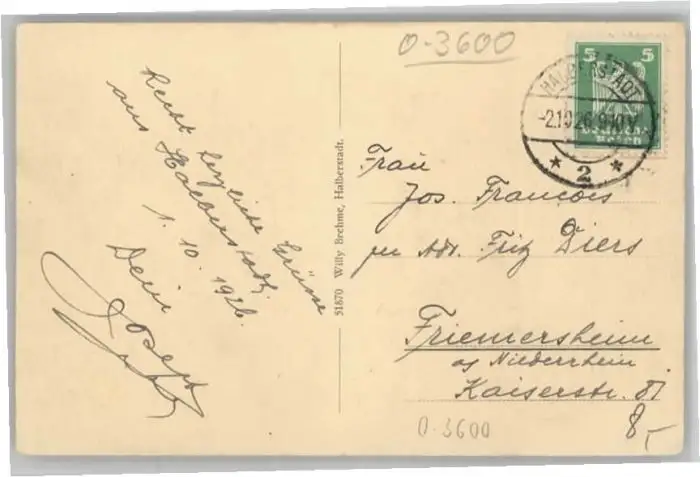 0-3600
5 5
Deutsches
Reich
HALBERSTADT
-2.10.26.9-10V
* 2 *
Recht herzliche Grüsse
aus Halberstadt.
1. 10. 1926.
Dein
Joseph
51870 Willy Brehme, Halberstadt.
Frau
Jos. François
per Adr. Fritz Diers
Friemersheim
a/ Niederrhein
Kaiserstr.
0-3600
8,-